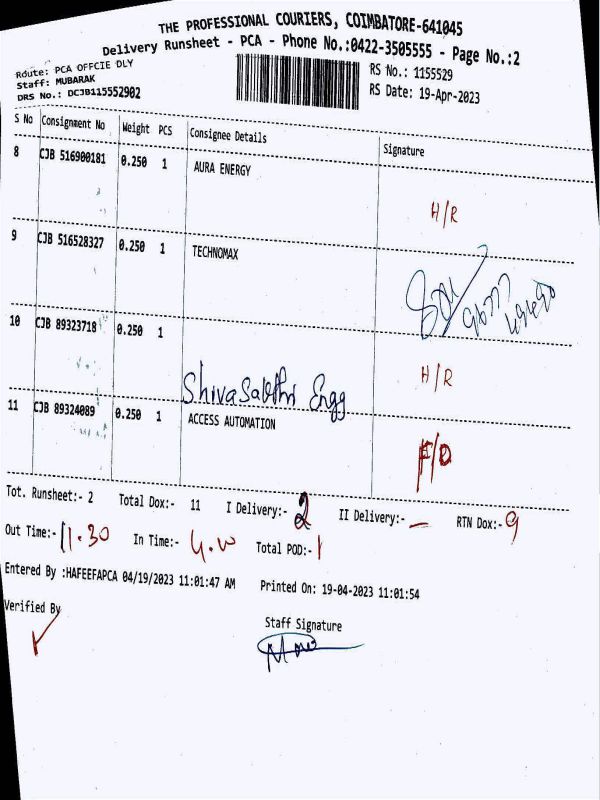 THE PROFESSIONAL COURIERS, COIMBATORE-641045
Delivery Runsheet - PCA - Phone No.:0422-3505555 - Page No.:2
Route: PCA OFFCIE DLY
Staff: MUBARAK
DRS No.: DCJB115552902
RS No.: 1155529
RS Date: 19-Apr-2023
S No Consignment No Weight PCS Consignee Details Signature
8 CJB 516900181 0.250 1 AURA ENERGY
H/R
9 CJB 516528327 0.250 1 TECHNOMAX
10 CJB 89323718 0.250 1
Shivasakthi Engg
H/R
11 CJB 89324089 0.250 1 ACCESS AUTOMATION
F/D
Tot. Runsheet:- 2 Total Dox:- 11 I Delivery:- 2 II Delivery:- — RTN Dox:- 9
Out Time:- 11.30 In Time:- 4.00 Total POD:- 1
Entered By :HAFEEFAPCA 04/19/2023 11:01:47 AM Printed On: 19-04-2023 11:01:54
Verified By
Staff Signature